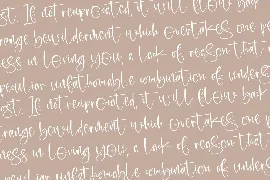 est. If not reciprocated, it will flow back
range bewilderment which overtakes one p
ness in loving you, a lack of reason that
peculiar unfathomable combination of unders
est. If not reciprocated, it will flow back
range bewilderment which overtakes one p
ness in loving you, a lack of reason that
peculiar unfathomable combination of unders